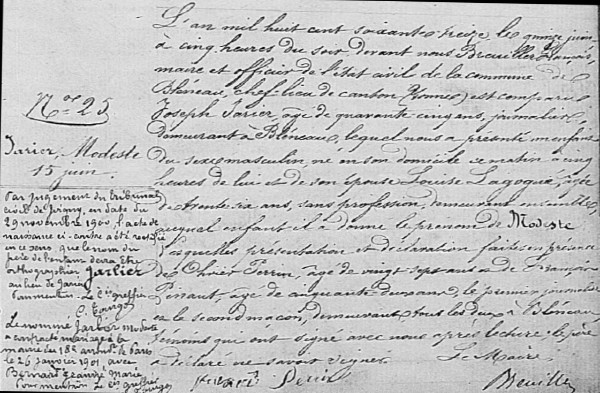 L'an mil huit cent soixante treize, le quinze juin
à cinq heures du soir devant nous Breuiller François
maire et officier de l'état civil de la commune de
Bléneau, chef-lieu de canton (Yonne) est comparu
Joseph Jarier, âgé de quarante cinq ans, journalier
demeurant à Bléneau, lequel nous a présenté un enfant
du sexe masculin, né en son domicile ce matin à cinq
heures de lui et de son épouse Louise Lagogué, âgée
de trente six ans, sans profession, demeurant ensemble,
auquel enfant il a donné le prénom de Modeste
Lesquelles présentation et déclaration faites en présence
de Olivier Perrin, âgé de vingt sept ans & de François
Pinaut, âgé de cinquante deux ans, le premier journalier
et le second maçon, demeurant tous les deux à Bléneau
témoins qui ont signé avec nous après lecture, le père
a déclaré ne savoir signer. Le Maire,
Perrin
Breuiller
N° 25
Jarier, Modeste
15 juin
Par jugement du tribunal
civil de Joigny, en date du
29 novembre 1900, l'acte de
naissance ci-contre a été rectifié
en ce sens que le nom du
père de l'enfant devra être
orthographié Jarlier
au lieu de Jarier
Pour mention Le Cis greffier
Le nommé Jarlier Modeste
a contracté mariage à la
mairie du 18e arrondt de Paris
le 5 janvier 1901 avec
Bernard Marie
Pour mention Le Cis greffier